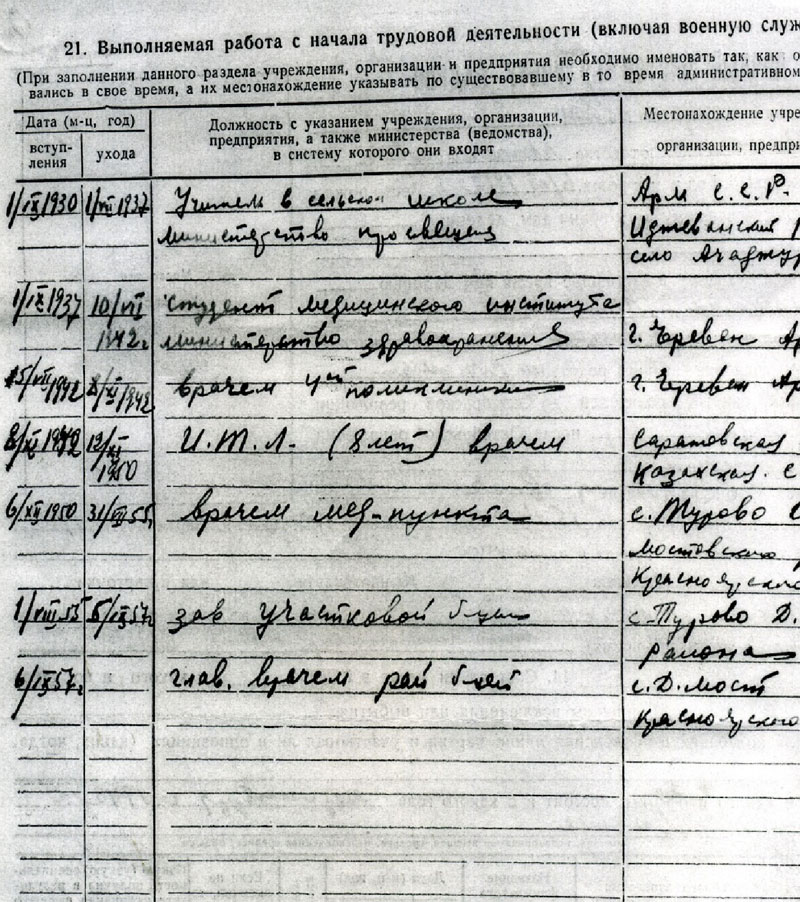 21. Выполняемая работа с начала трудовой деятельности (включая военную служ
(При заполнении данного раздела учреждения, организации и предприятия необходимо именовать так, как о
вались в свое время, а их местонахождение указывать по существовавшему в то время административном
Дата (м-ц, год)
вступ-
ления
ухода
Должность с указанием учреждения, организации,
предприятия, а также министерства (ведомства),
в систему которого они входят
Местонахождение учре
организации, предпри
1/IX 1930 1/VII 1937 Учитель в сельской школе Арм С.С.Р.
министерство просвещен Иджеванский р
село Ачаджур
1/IX 1937 10/VII студент медицинского института
1942г. министерство здравоохранения г. Ереван Ар
15/VII 1942 8/XI 1942 врачем поликлиники г. Ереван Ар
8/XI 1942 12/XI И.Т.Л. (8 лет) врачем Саратовская
1950 Казахская. С
6/XII 1950 31/VII 55г. врачем мед-пункта с. Турово
мостовского
Красноярского
1/VIII 55 5/IX 57г. зав участковой б-цы с. Турово Д.
района
6/IX 57г. глав. врачем рай б-цей с. Д. мост
Красноярского